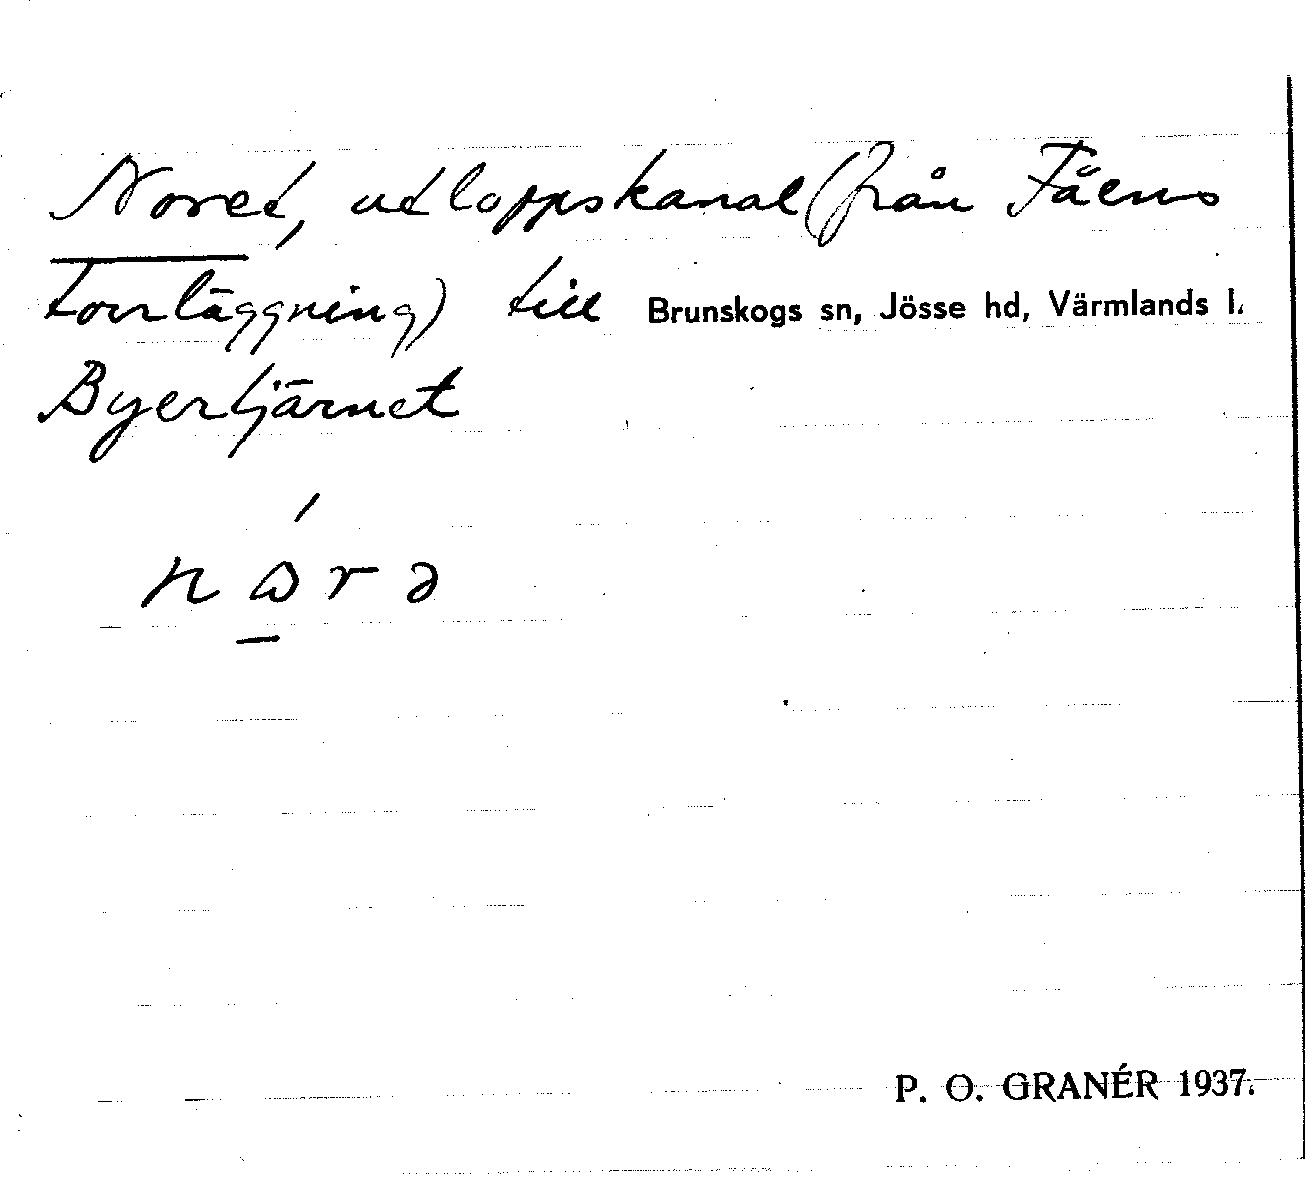 Noret, utloppskanal (från Fäens
torrläggning) till Brunskogs sn, Jösse hd, Värmlands l.
Byertjärnet
P. O. GRANÉR 1937.